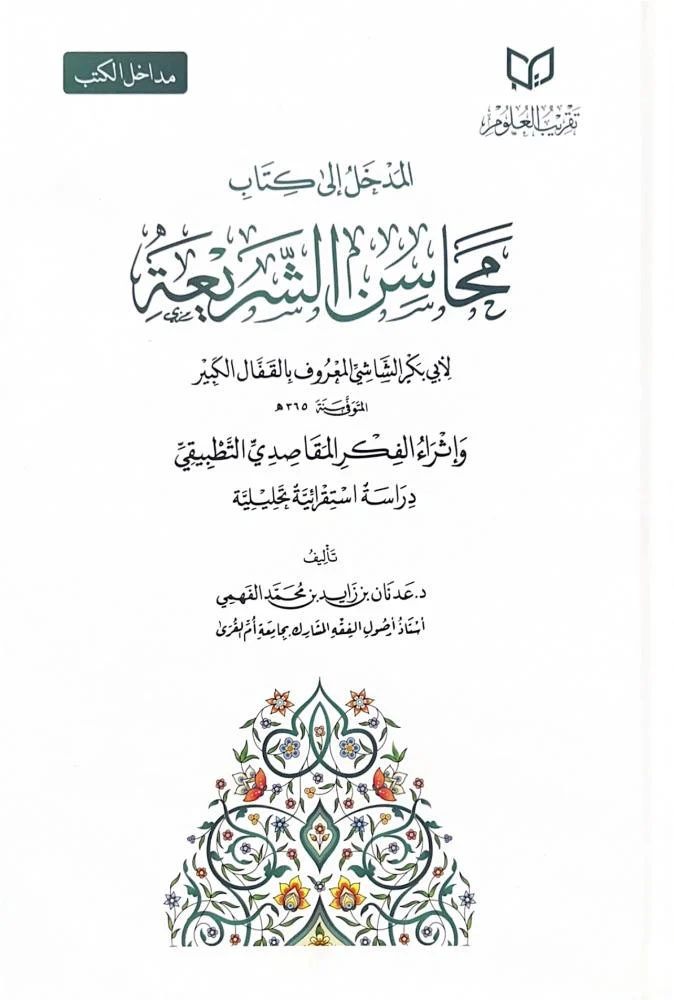 مداخل الكتب
تقريب العلوم
المدخل إلى كتاب
محاسن الشريعة
لأبي بكر الشاشي المعروف بالقفال الكبير
المتوفى سنة ٣٦٥ هـ
وإثراء الفكر المقاصدي التطبيقي
دراسة استقرائية تحليلية
تأليف
د. عدنان بن زايد بن محمد الفهمي
أستاذ أصول الفقه المشارك بجامعة أم القرى